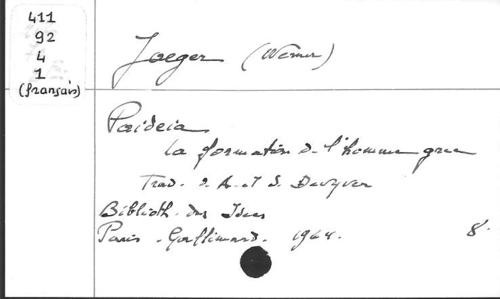 411
92
4
1
(français)
Jaeger (Werner)
Paideia
La formation de l'homme grec
Trad. d. A. et S. Devyver
Biblioth. des Idées
Paris. Gallimard. 1964. 8°